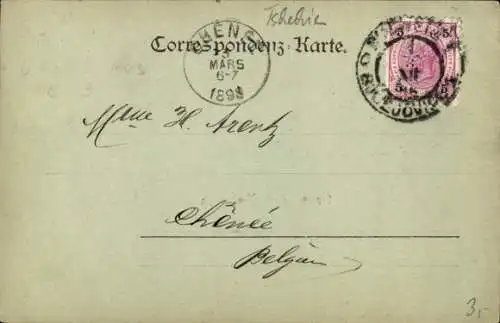 Tshebin
Correspondenz-Karte.
CHÊNÉE
3
MARS
6-7
1899
Mme H. Arentz
Chênée
Belgien
3,-